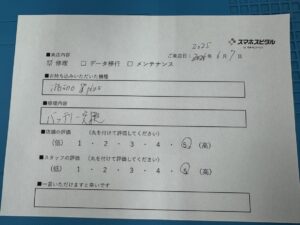 スマホスピタル
2025
■来店内容
ご来店日: 2024年 6月 7日
☒ 修理 □ データ移行 □ メンテナンス
■お持ち込みいただいた機種
iPhone 8 plus
■修理内容
バッテリー交換
■店舗の評価 (丸を付けて評価してください)
(低) 1 ・ 2 ・ 3 ・ 4 ・ 5 (高)
■スタッフの評価 (丸を付けて評価してください)
(低) 1 ・ 2 ・ 3 ・ 4 ・ 5 (高)
■一言いただけますと幸いです